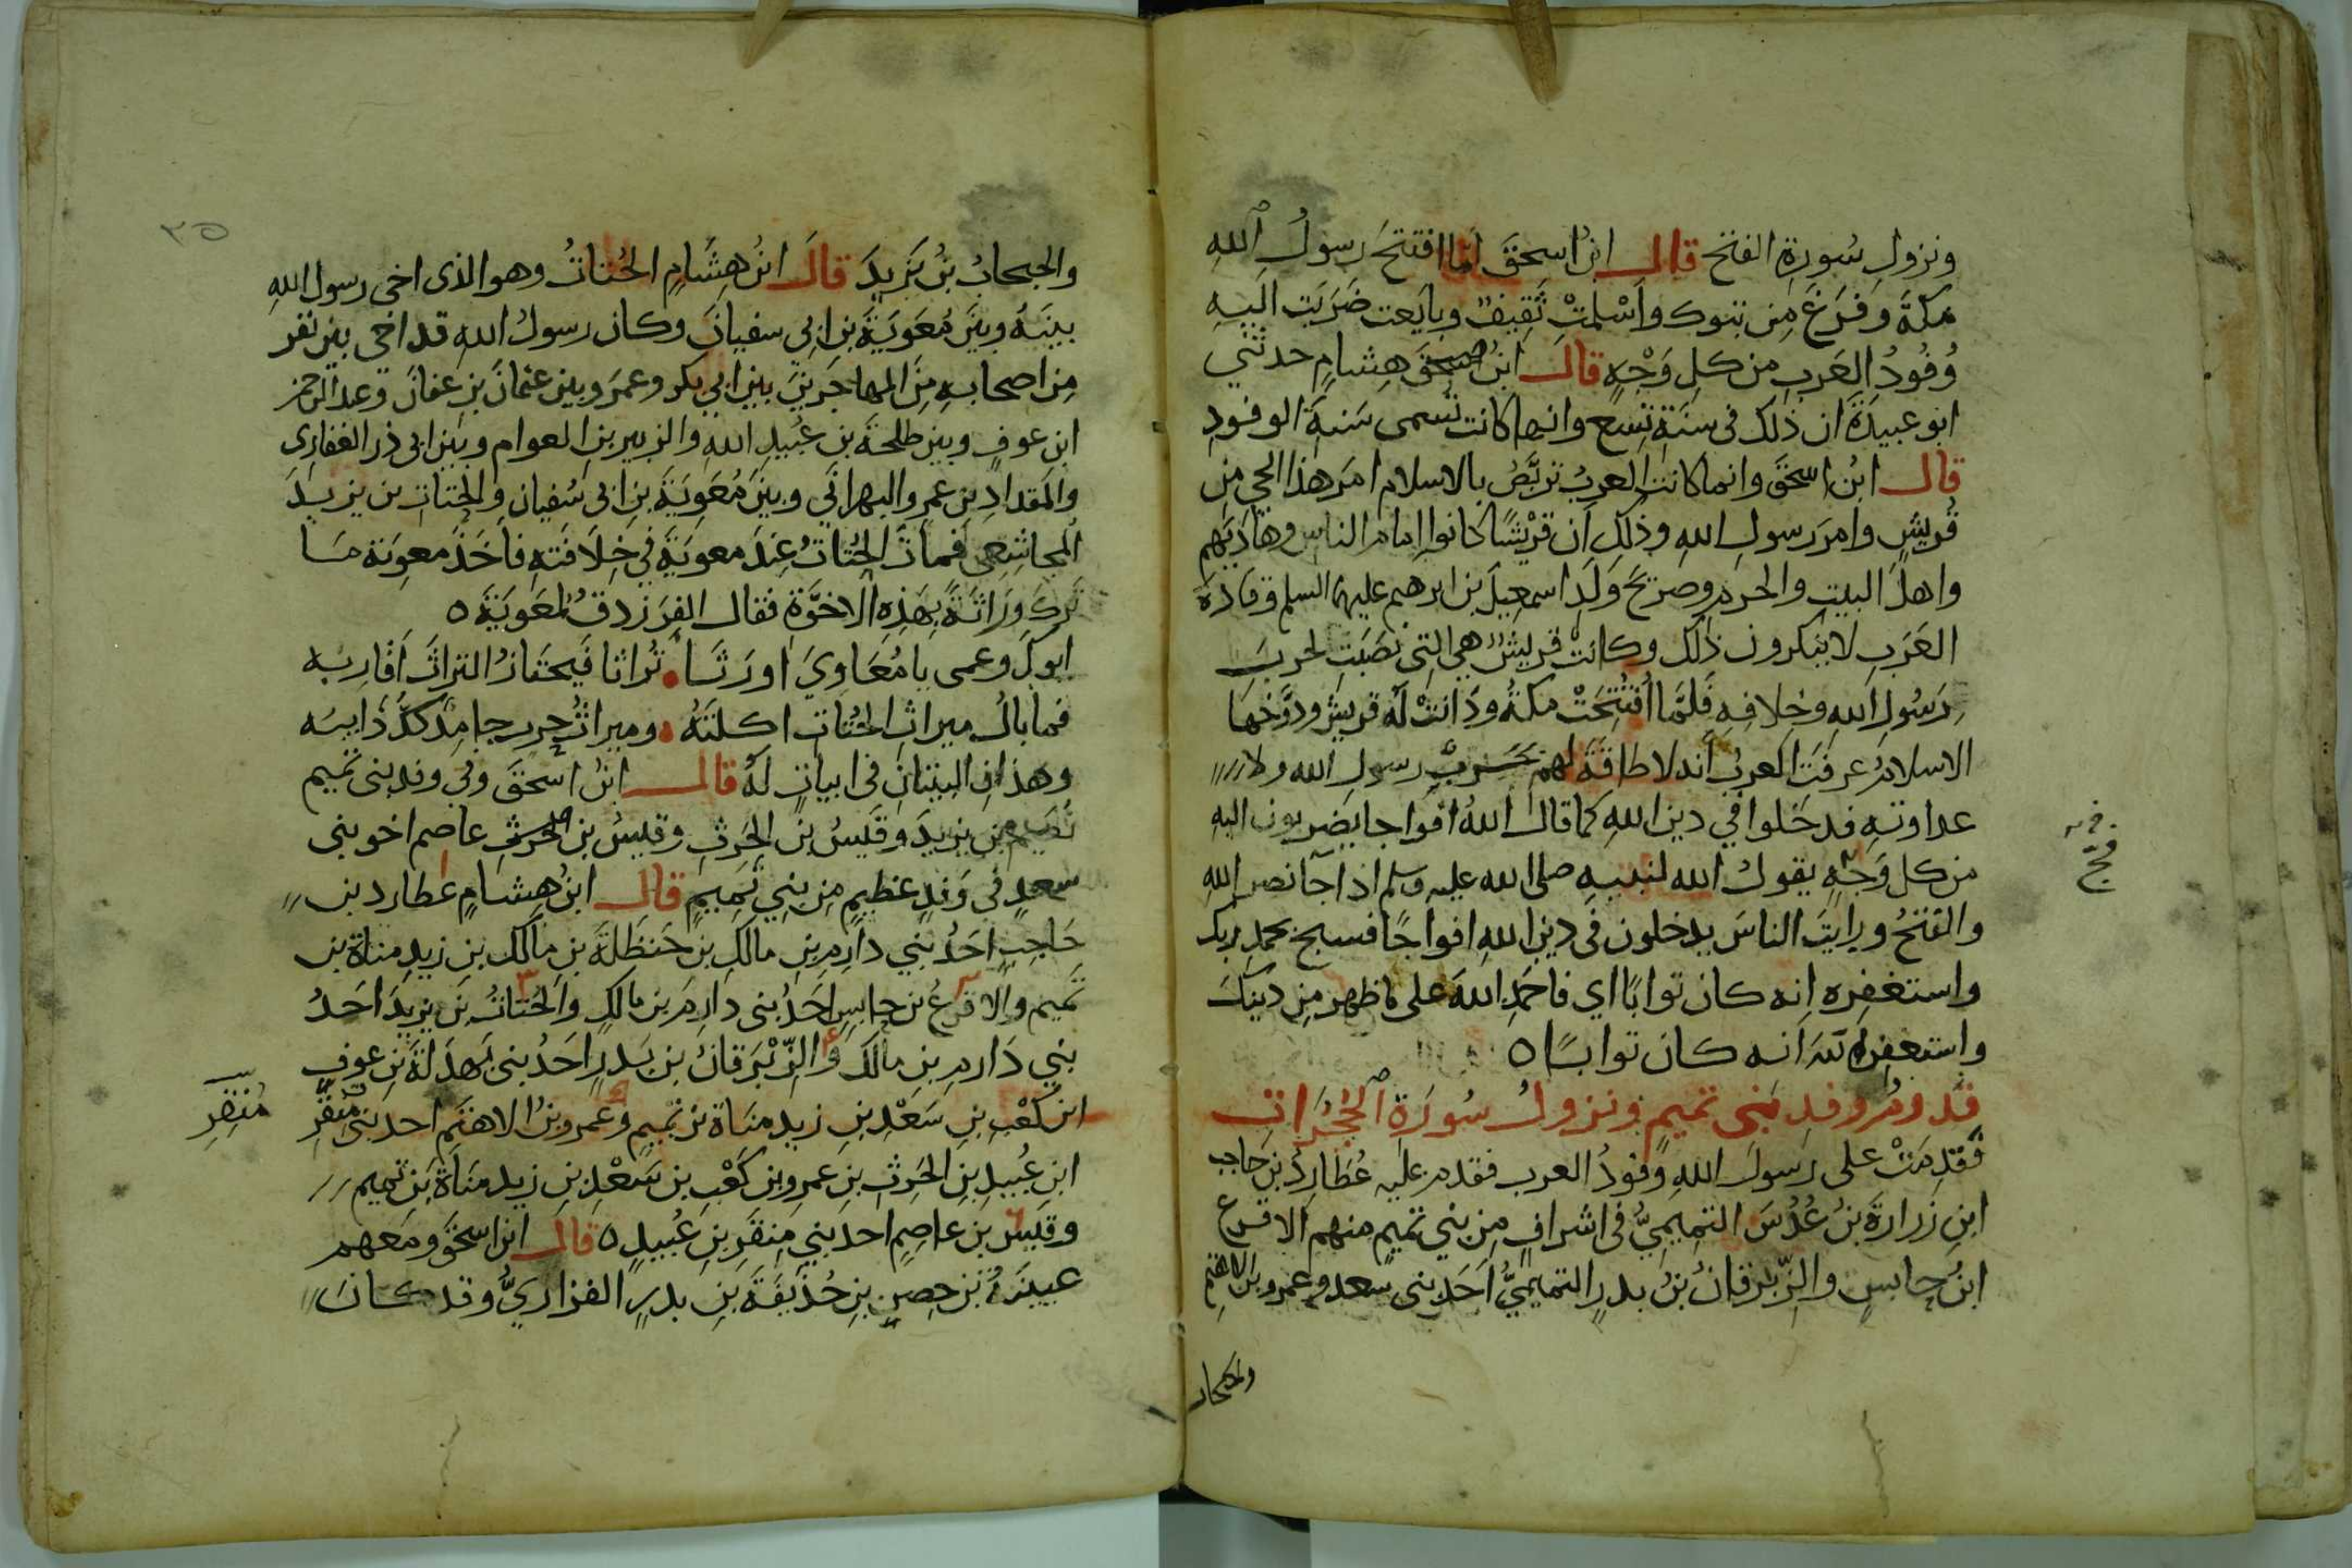 ونزول سُورة الفتح قال ابن اسحق لما افتتح رسول الله
مكة وفرغ من تبوك واسلمت ثقيف وبايعت ضربت اليه
وُفُودُ العرب من كل وَجْهٍ قال ابن هشام حدثني
ابو عبيدة ان ذلك في سنة تسع وانها كانت تسمى سنة الوفود
قال ابن اسحق وانما كانت العرب تربص بالاسلام امر هذا الحي من
قريش وامر رسول الله وذلك ان قريشًا كانوا امام الناس وهاديهم
واهل البيت والحرم وصريح ولد اسمعيل بن ابرهيم عليهما السلم وقادة
العرب لا ينكرون ذلك وكانت قريش هي التي نصبت لحرب
رسول الله وخلافه فلما افتتحت مكة ودانت له قريش ودوّخها
الاسلام عرفت العرب انه لا طاقة لهم بحرب رسول الله ولا
عداوته فدخلوا في دين الله كما قال الله افواجا يضربون اليه
من كل وجه يقول الله لنبيه صلى الله عليه وسلم اذا جآ نصر الله
والفتح ورايت الناس يدخلون في دين الله افواجًا فسبح بحمد ربك
واستغفره انه كان توابًا اي فاحمد الله على ما ظهر من دينك
واستغفره انه كان توابًا ٥
قدوم وفد بني تميم ونزول سُورَة الحُجُرَات
فقدمت على رسول الله وفود العرب فقدم عليه عُطارد بن حاجب
ابن زرارة بن عُدُس التميميُّ في اشراف من بني تميم منهم الاقرع
ابنُ حابس والزّبرقانُ بنُ بدر التميميُّ احد بني سعد وعمرو بن الاهتم
والحبحاب
٣٥
والحبحابُ بنُ يزيدَ قال ابنُ هشامٍ الحُتاتُ وهو الذى اخى رسول الله
بينَهُ وبينَ مُعَويَةَ بن ابي سفيانَ وكان رسولُ الله قد اخى بين نفر
من اصحابه من المهاجرين بين ابي بكر وعمر وبين عثمان بن عفان وعبد الرحمن
ابن عوف وبين طلحة بن عبيد الله والزبير بن العوام وبين ابي ذر الغفارى
والمقداد بن عمرو البهراني وبين مُعَويَة بن ابي سُفيان والحتات بن يزيد
المجاشعي فمات الحُتاتُ عند معوية في خلافته فاخذ معوية ما
ترك وراثةً بهذه الاخوَّة فقال الفرزدقُ لمعوية ٥
ابوك وعمى يا مُعَاويَ اورثا ٠ تُراثا فيحتازُ التراثَ اقاربه
فما بالُ ميراث الحُتات اكلتَهُ ٠ وميراثُ حرب جامدٌ لك ذايبه
وهذان البيتان في ابيات له قال ابن اسحق وفي وفد بني تميم
نُعيم بن يزيد وقيسُ بن الحرث وقيس بن عاصم اخو بني
سعدٍ في وَفدٍ عظيمٍ من بني تميمٍ قال ابنُ هشامٍ عطارد بن
حاجبٍ احَدُ بني دارم بن مالك بن حنظلة بن مالك بن زيد مناة بن
تميم والاقرعُ بن حابس احدُ بني دارم بن مالك والحُتاتُ بن يزيد احَدُ
بني دَارم بن مالك والزّبْرَقانُ بن بَدرٍ احَدُ بني بهدلة بن عوف
ابن كعْب بن سَعْد بن زيد مناة بن تميم وعمرو بنُ الاهتم احد بني مِنْقَرِ
مِنقرِ
ابن عُبيد بن الحرث بن عمرو بن كَعْب بن سَعْد بن زيد مناة بن تميم
وقيس بن عاصمٍ احد بني مِنقَر بن عُبيدٍ ٥ قال ابن اسحق ومعهم
عيينةُ بن حصن بن حُذَيفَة بن بدرٍ الفزاريُّ وقد كانَ